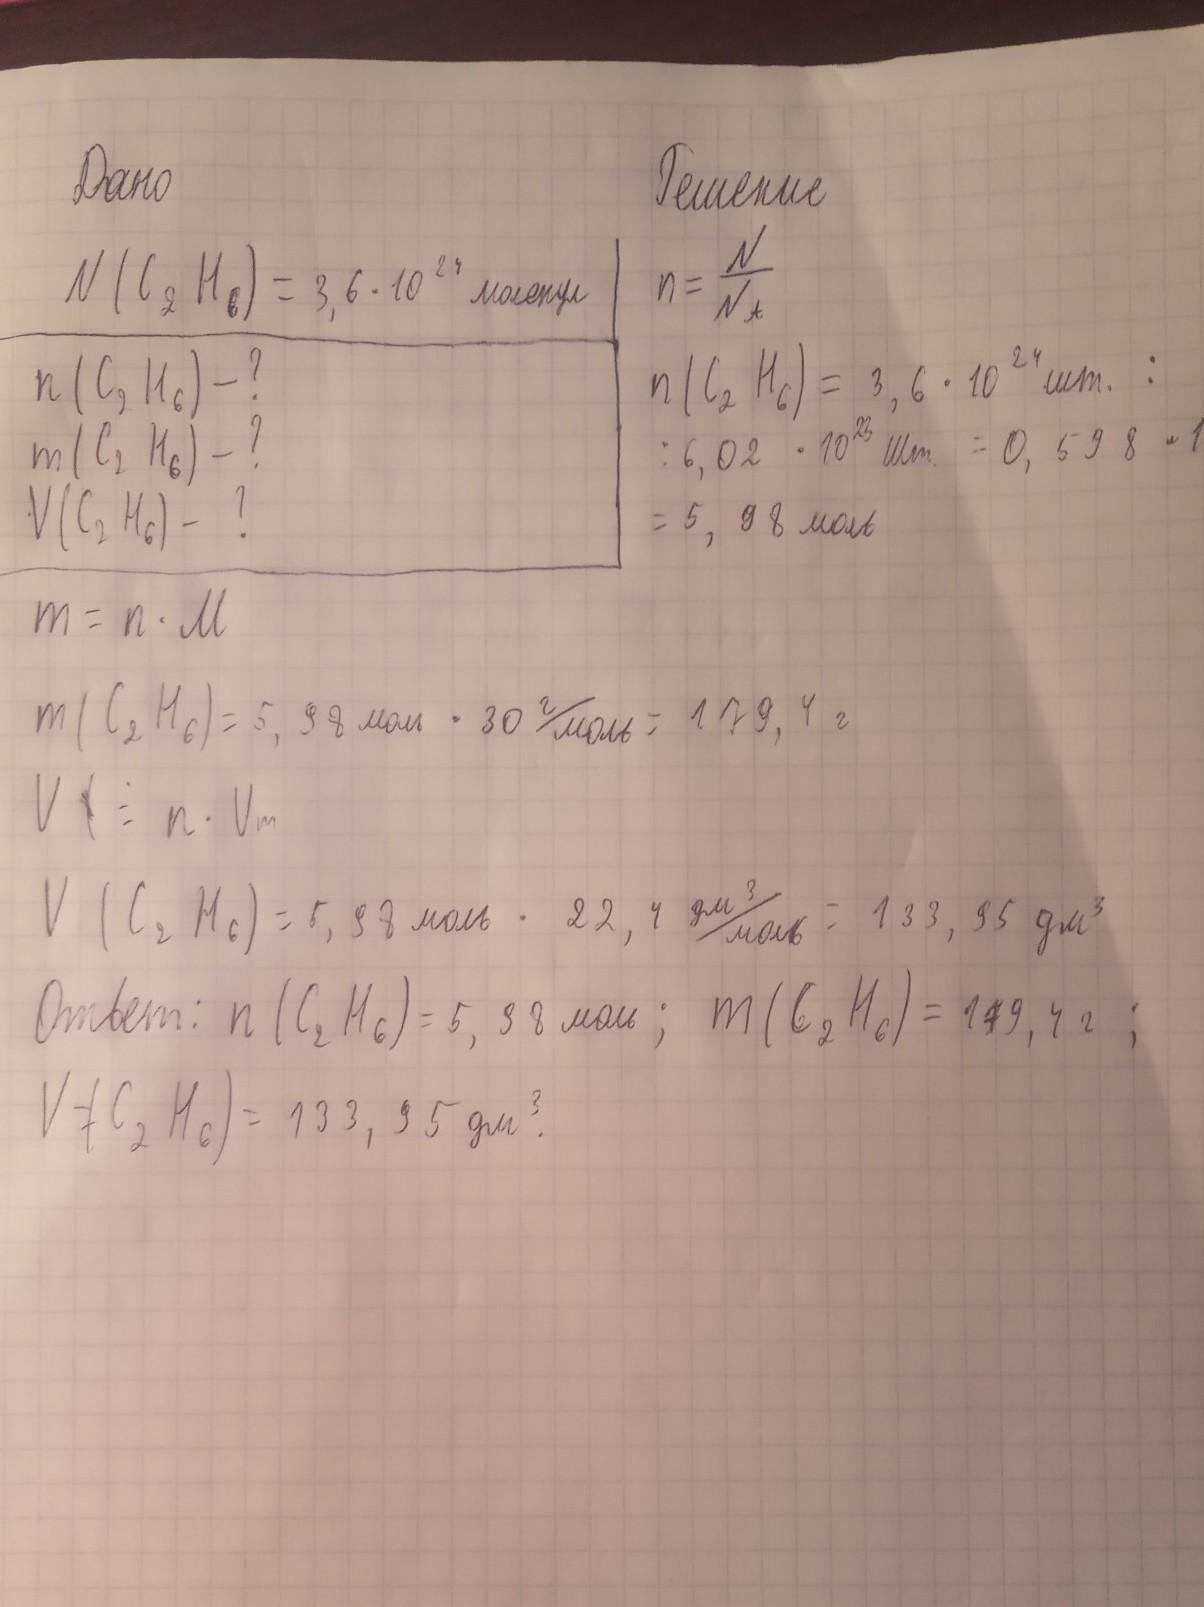 Дано
N(C₂H₆) = 3,6·10²⁴ молекул
n(C₂H₆) – ?
m(C₂H₆) – ?
V(C₂H₆) – ?
Решение
n = N/N_A
n(C₂H₆) = 3,6·10²⁴ шт. :
: 6,02 ·10²³ шт. = 0,598 · 1
= 5,98 моль
m = n·M
m(C₂H₆) = 5,98 моль · 30 г/моль = 179,4 г
V = n·Vm
V (C₂H₆) = 5,98 моль · 22,4 дм³/моль = 133,95 дм³
Ответ: n(C₂H₆) = 5,98 моль; m(C₂H₆) = 179,4 г;
V(C₂H₆) = 133,95 дм³.